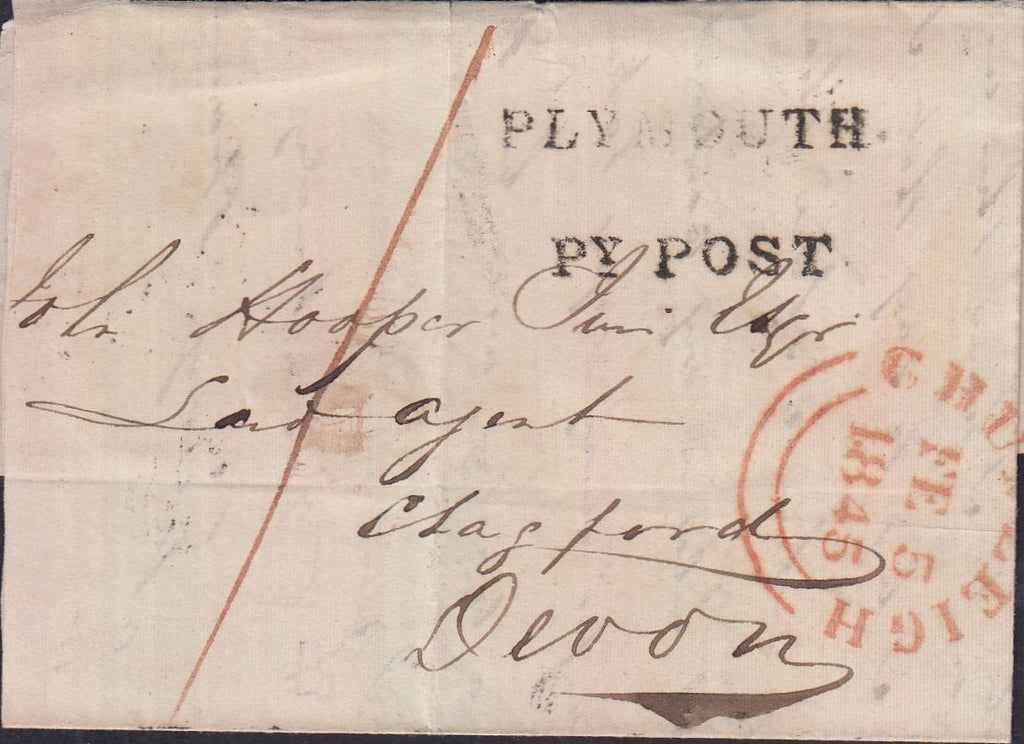 PLYMOUTH
PY POST
John Hooper Junr Esqr
Land agent
Chagford
Devon
CHUDLEIGH
FE 5
1845